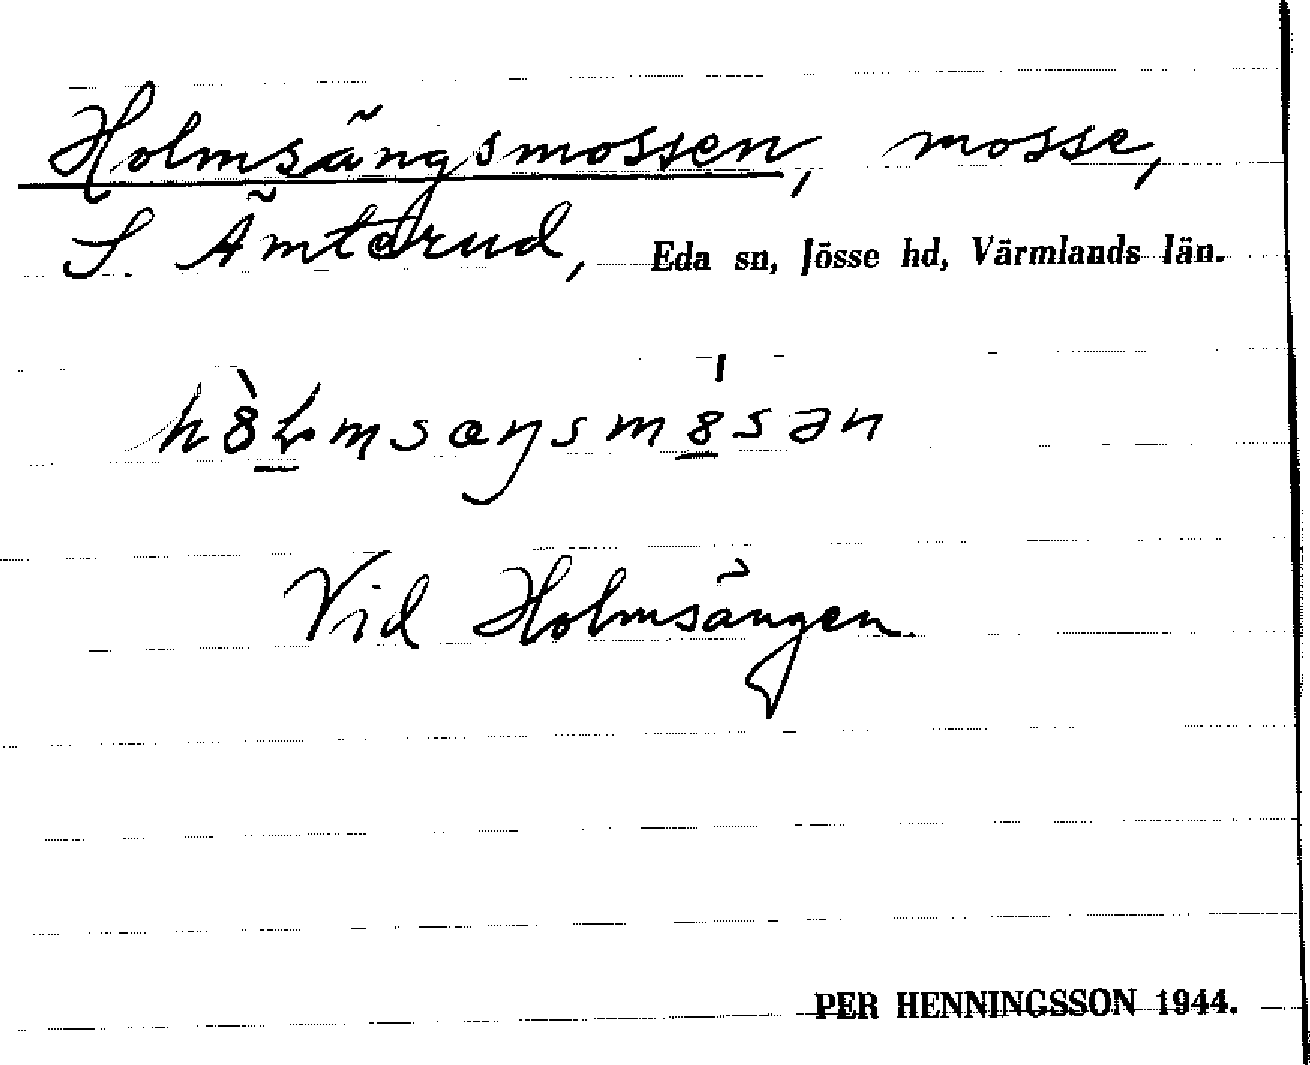 Holmsängsmossen, mosse,
S. Ämterud, Eda sn, Jösse hd, Värmlands län.
Vid Holmsängen
PER HENNINGSSON 1944.